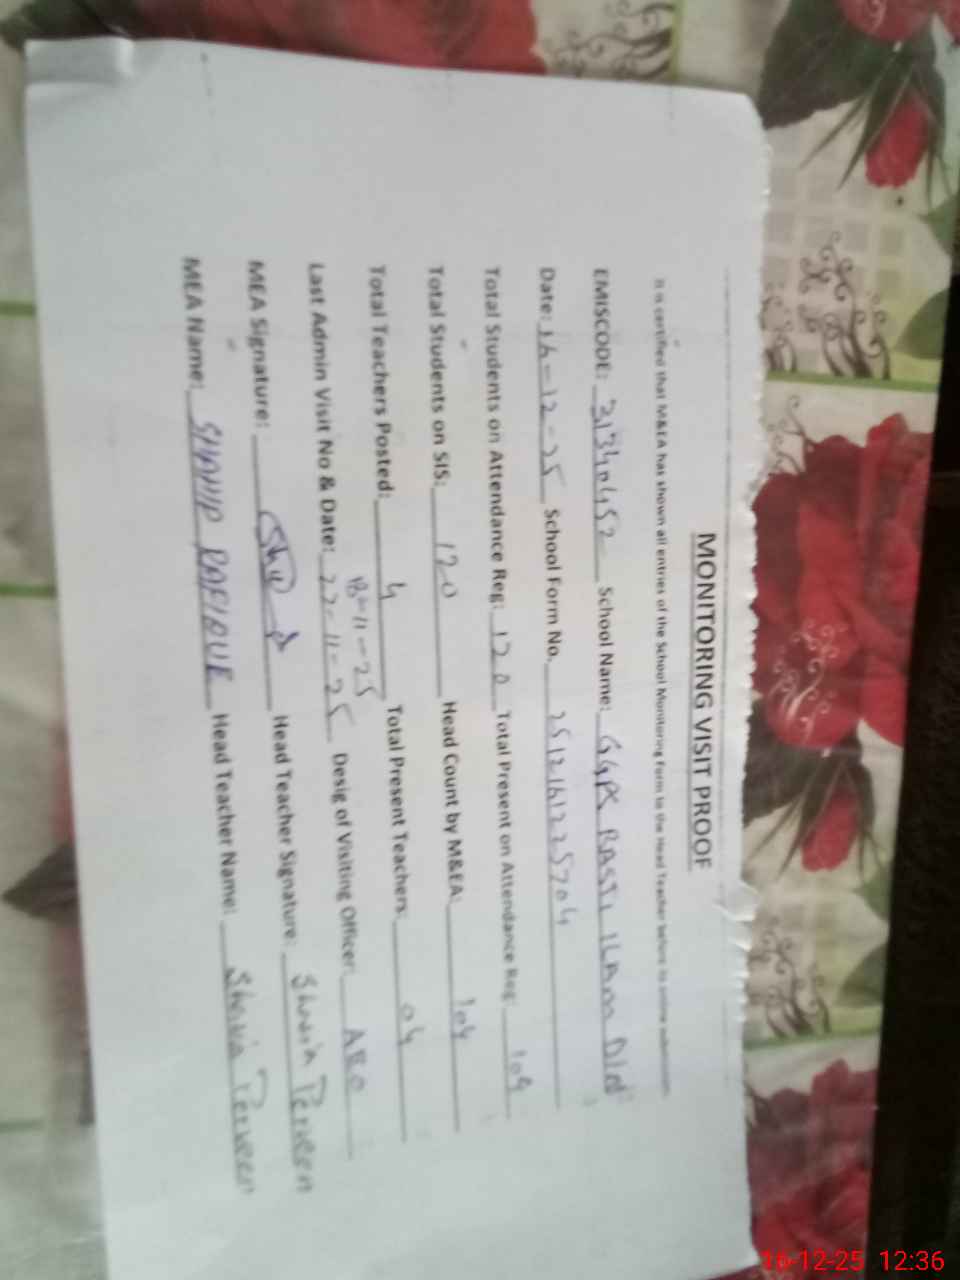 MONITORING VISIT PROOF
It is certified that M&EA has shown all entries of the School Monitoring Form to the Head Teacher before its online submission
EMISCODE: 31340452 School Name: GGPS BASTI ILAM DIN
Date: 16-12-25 School Form No. 2512161225704
Total Students on Attendance Reg: 120 Total Present on Attendance Reg: 104
Total Students on SIS: 120 Head Count by M&EA: 104
Total Teachers Posted: 4 Total Present Teachers: 04
18-11-25
Last Admin Visit No & Date: 22-11-25 Desig of Visiting Officer: AEO
MEA Signature: Head Teacher Signature: Perveen
MEA Name: SHAHID RAFIQUE Head Teacher Name: Perveen
16-12-25 12:36